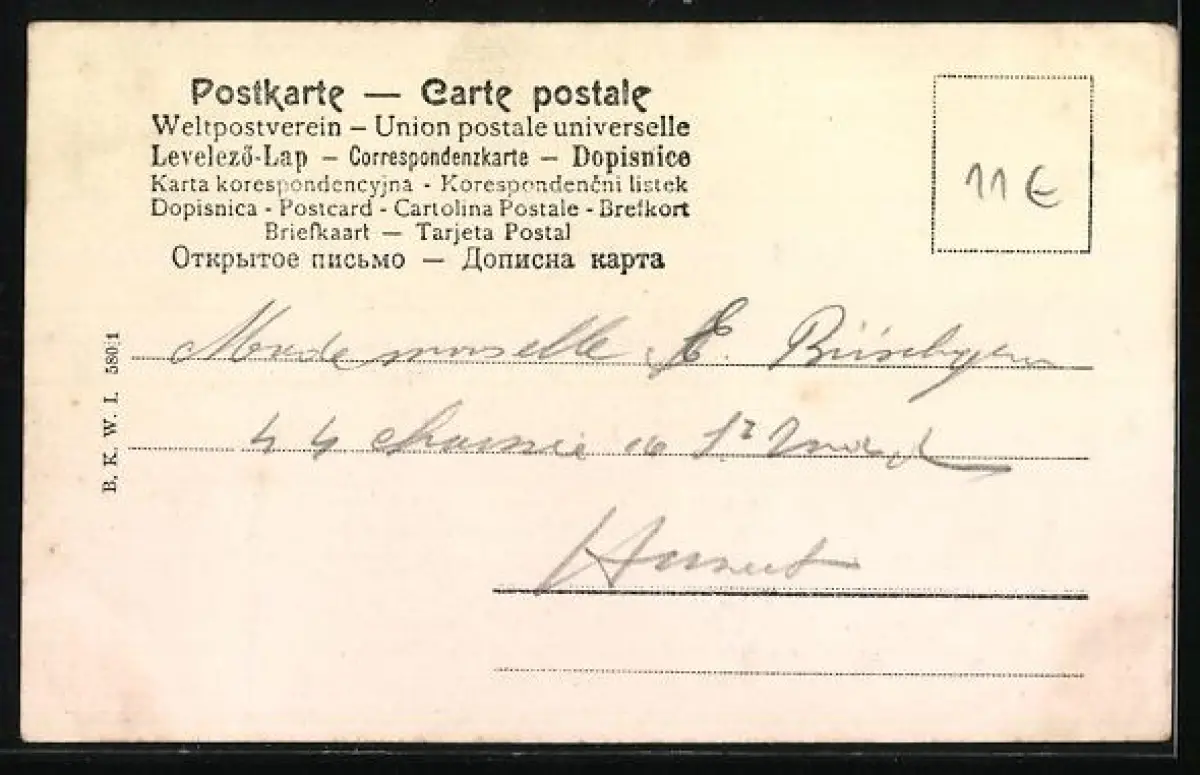 Postkarte — Carte postale
Weltpostverein – Union postale universelle
Levelező-Lap – Correspondenzkarte – Dopisnice
Karta korespondencyjna - Korespondenční listek
Dopisnica - Postcard - Cartolina Postale - Brefkort
Briefkaart — Tarjeta Postal
Открытое письмо — Дописна карта
11 €
B. K. W. I. 580/1
Mademoiselle E.
44